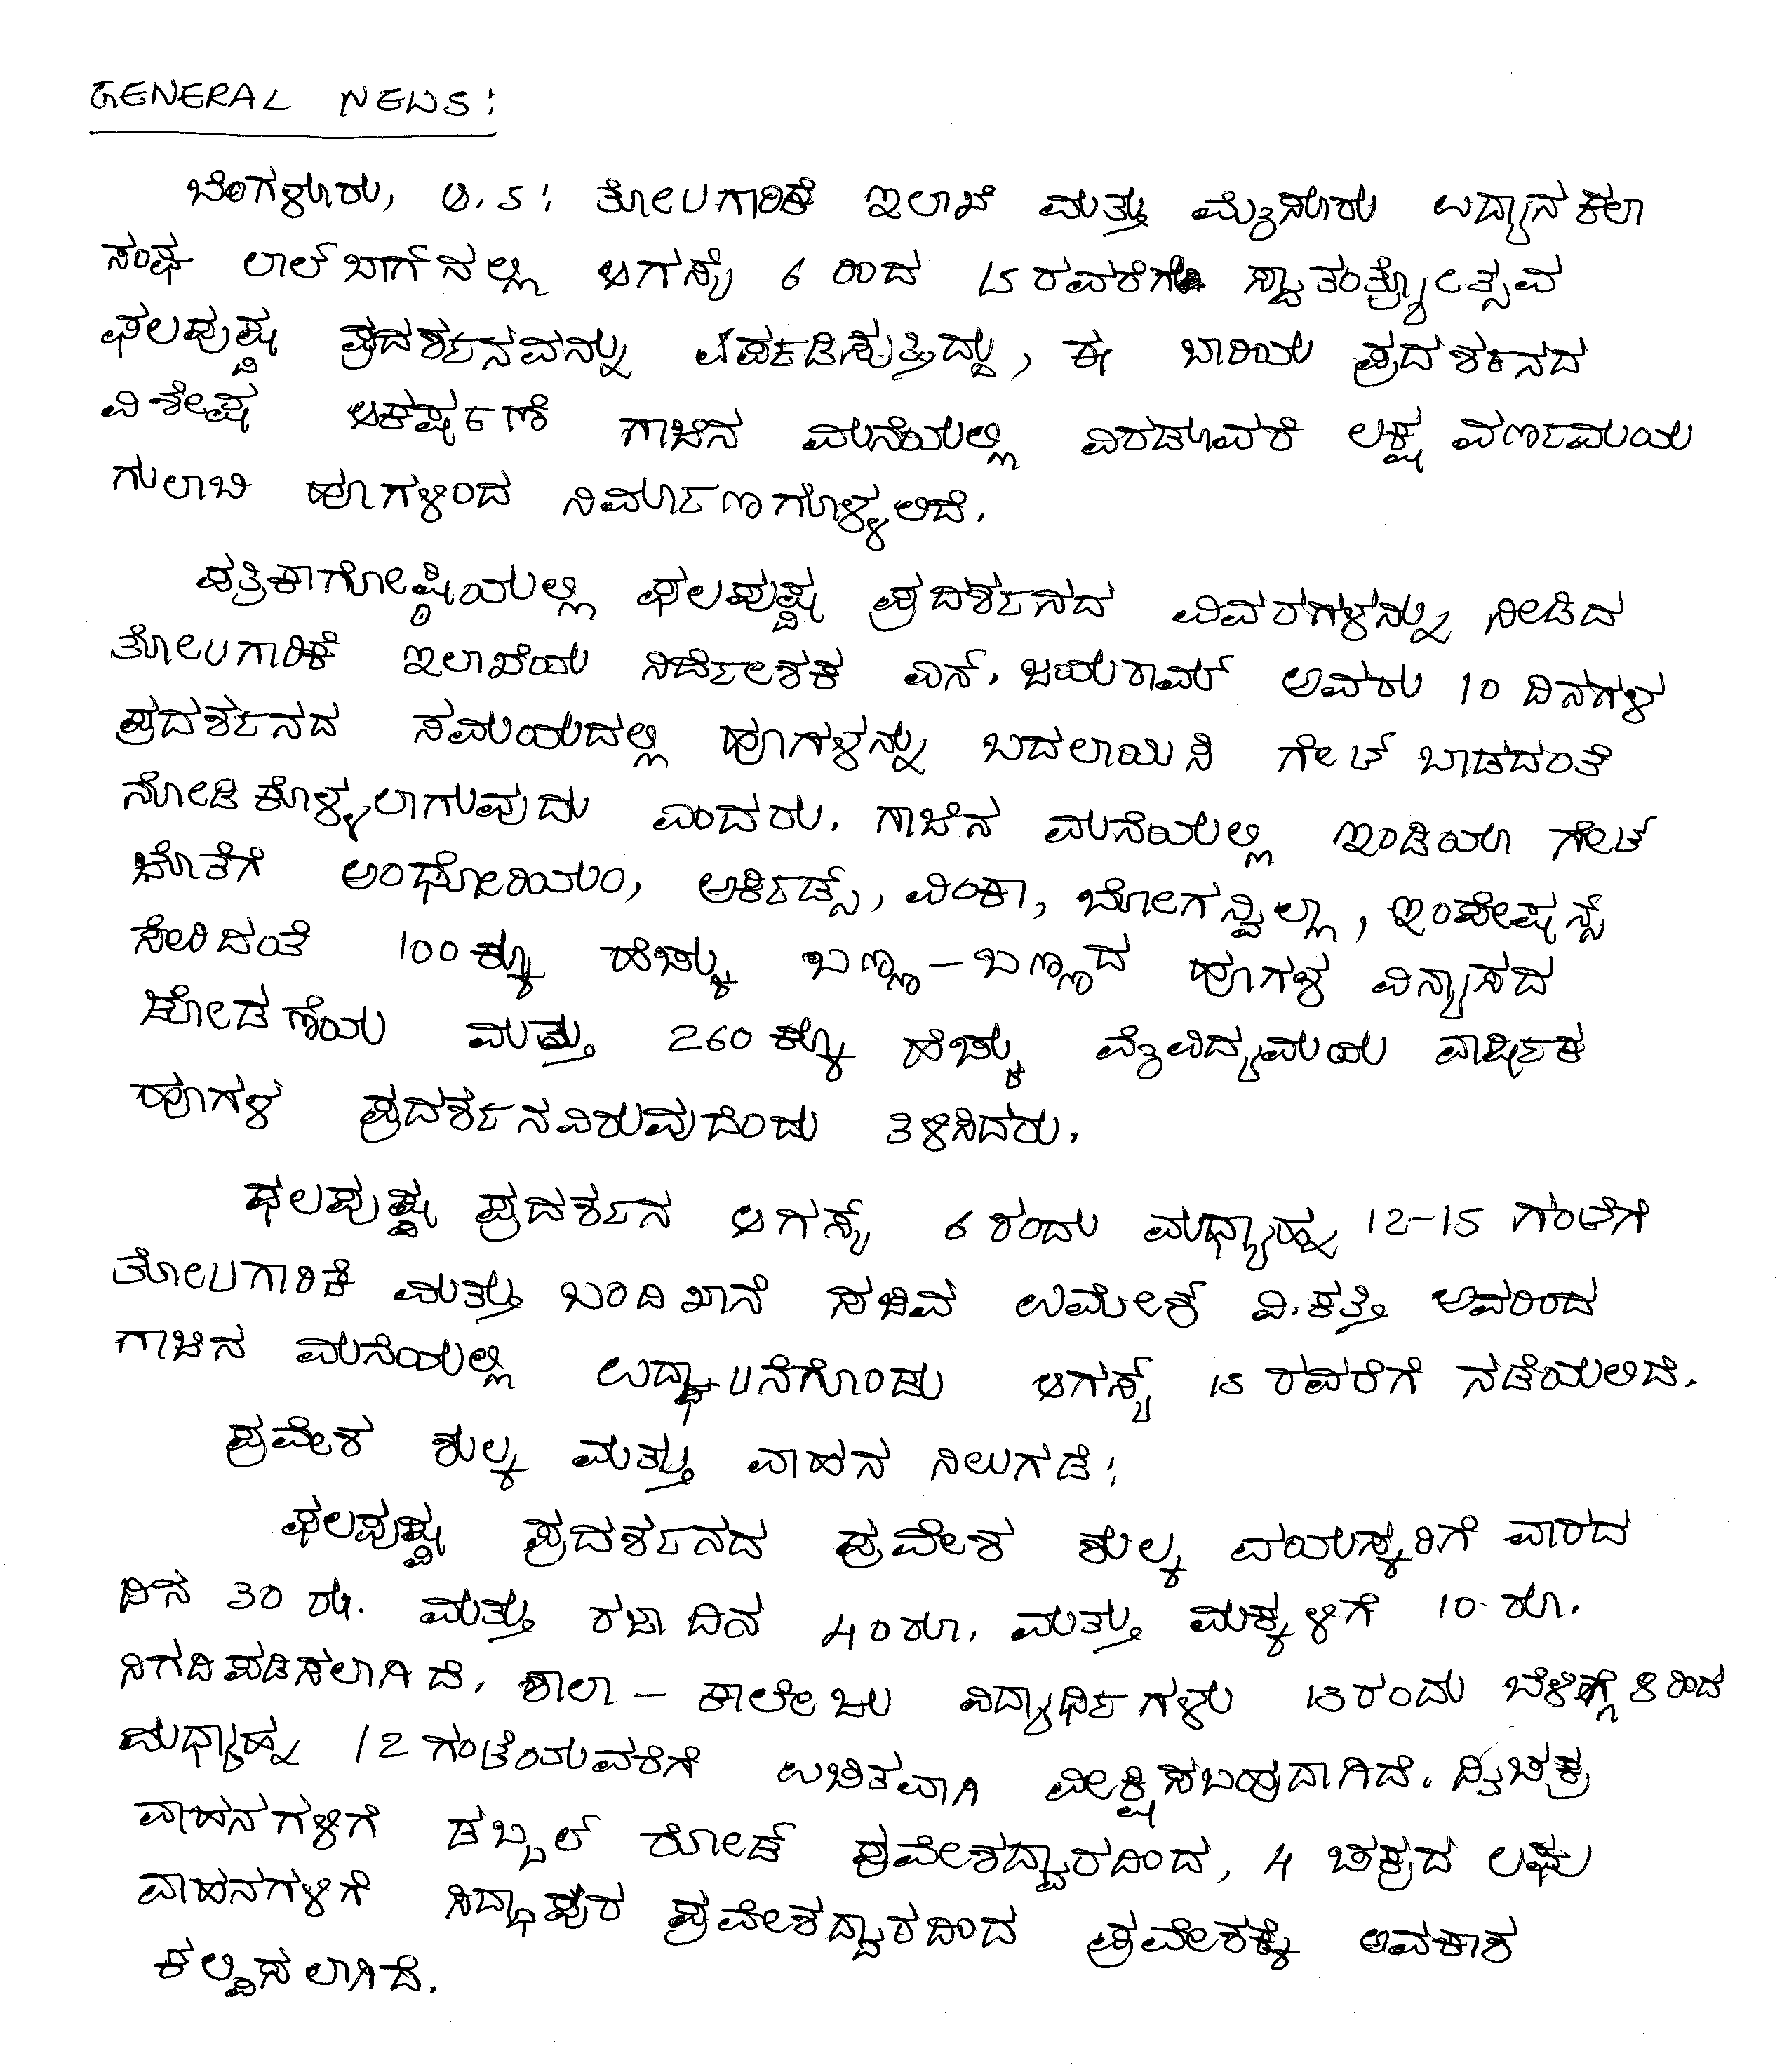 GENERAL NEWS:
ಬೆಂಗಳೂರು, ಆ. 5: ತೋಟಗಾರಿಕೆ ಇಲಾಖೆ ಮತ್ತು ಮೈಸೂರು ಉದ್ಯಾನಕಲಾ
ಸಂಘ ಲಾಲ್‌ಬಾಗ್‌ನಲ್ಲಿ ಆಗಸ್ಟ್ 6 ರಿಂದ 15ರವರೆಗೆ ಸ್ವಾತಂತ್ರ್ಯೋತ್ಸವ
ಫಲಪುಷ್ಪ ಪ್ರದರ್ಶನವನ್ನು ಏರ್ಪಡಿಸುತ್ತಿದ್ದು, ಈ ಬಾರಿಯ ಪ್ರದರ್ಶನದ
ವಿಶೇಷ ಆಕರ್ಷಣೆ ಗಾಜಿನ ಮನೆಯಲ್ಲಿ ಎರಡೂವರೆ ಲಕ್ಷ ವರ್ಣಮಯ
ಗುಲಾಬಿ ಹೂಗಳಿಂದ ನಿರ್ಮಾಣಗೊಳ್ಳಲಿದೆ.
ಪತ್ರಿಕಾಗೋಷ್ಠಿಯಲ್ಲಿ ಫಲಪುಷ್ಪ ಪ್ರದರ್ಶನದ ವಿವರಗಳನ್ನು ನೀಡಿದ
ತೋಟಗಾರಿಕೆ ಇಲಾಖೆಯ ನಿರ್ದೇಶಕ ಎನ್. ಜಯರಾಮ್ ಅವರು 10 ದಿನಗಳ
ಪ್ರದರ್ಶನದ ಸಮಯದಲ್ಲಿ ಹೂಗಳನ್ನು ಬದಲಾಯಿಸಿ ಗೇಟ್ ಬಾಡದಂತೆ
ನೋಡಿಕೊಳ್ಳಲಾಗುವುದು ಎಂದರು. ಗಾಜಿನ ಮನೆಯಲ್ಲಿ ಇಂಡಿಯಾ ಗೇಟ್
ಜೊತೆಗೆ ಅಂಥೋರಿಯಂ, ಆರ್ಕಿಡ್ಸ್, ವಿಂಕಾ, ಬೋಗನ್ವಿಲ್ಲಾ, ಇಂಪೇಷನ್ಸ್
ಸೇರಿದಂತೆ 100ಕ್ಕೂ ಹೆಚ್ಚು ಬಣ್ಣ-ಬಣ್ಣದ ಹೂಗಳ ವಿನ್ಯಾಸದ
ಜೋಡಣೆಯ ಮತ್ತು 260ಕ್ಕೂ ಹೆಚ್ಚು ವೈವಿಧ್ಯಮಯ ವಾರ್ಷಿಕ
ಹೂಗಳ ಪ್ರದರ್ಶನವಿರುವುದೆಂದು ತಿಳಿಸಿದರು.
ಫಲಪುಷ್ಪ ಪ್ರದರ್ಶನ ಆಗಸ್ಟ್ 6ರಂದು ಮಧ್ಯಾಹ್ನ 12-15 ಗಂಟೆಗೆ
ತೋಟಗಾರಿಕೆ ಮತ್ತು ಬಂದಿಖಾನೆ ಸಚಿವ ಉಮೇಶ್ ವಿ. ಕತ್ತಿ ಅವರಿಂದ
ಗಾಜಿನ ಮನೆಯಲ್ಲಿ ಉದ್ಘಾಟನೆಗೊಂಡು ಆಗಸ್ಟ್ 15 ರವರೆಗೆ ನಡೆಯಲಿದೆ.
ಪ್ರವೇಶ ಶುಲ್ಕ ಮತ್ತು ವಾಹನ ನಿಲುಗಡೆ:
ಫಲಪುಷ್ಪ ಪ್ರದರ್ಶನದ ಪ್ರವೇಶ ಶುಲ್ಕ ವಯಸ್ಕರಿಗೆ ವಾರದ
ದಿನ 30 ರೂ. ಮತ್ತು ರಜಾ ದಿನ 40ರೂ. ಮತ್ತು ಮಕ್ಕಳಿಗೆ 10 ರೂ.
ನಿಗದಿಪಡಿಸಲಾಗಿದೆ. ಶಾಲಾ - ಕಾಲೇಜು ವಿದ್ಯಾರ್ಥಿಗಳು 13ರಂದು ಬೆಳಿಗ್ಗೆ 8ರಿಂದ
ಮಧ್ಯಾಹ್ನ 12 ಗಂಟೆಯವರೆಗೆ ಉಚಿತವಾಗಿ ವೀಕ್ಷಿಸಬಹುದಾಗಿದೆ. ದ್ವಿಚಕ್ರ
ವಾಹನಗಳಿಗೆ ಡಬ್ಬಲ್ ರೋಡ್ ಪ್ರವೇಶದ್ವಾರದಿಂದ, 4 ಚಕ್ರದ ಲಘು
ವಾಹನಗಳಿಗೆ ಸಿದ್ಧಾಪುರ ಪ್ರವೇಶದ್ವಾರದಿಂದ ಪ್ರವೇಶಕ್ಕೆ ಅವಕಾಶ
ಕಲ್ಪಿಸಲಾಗಿದೆ.